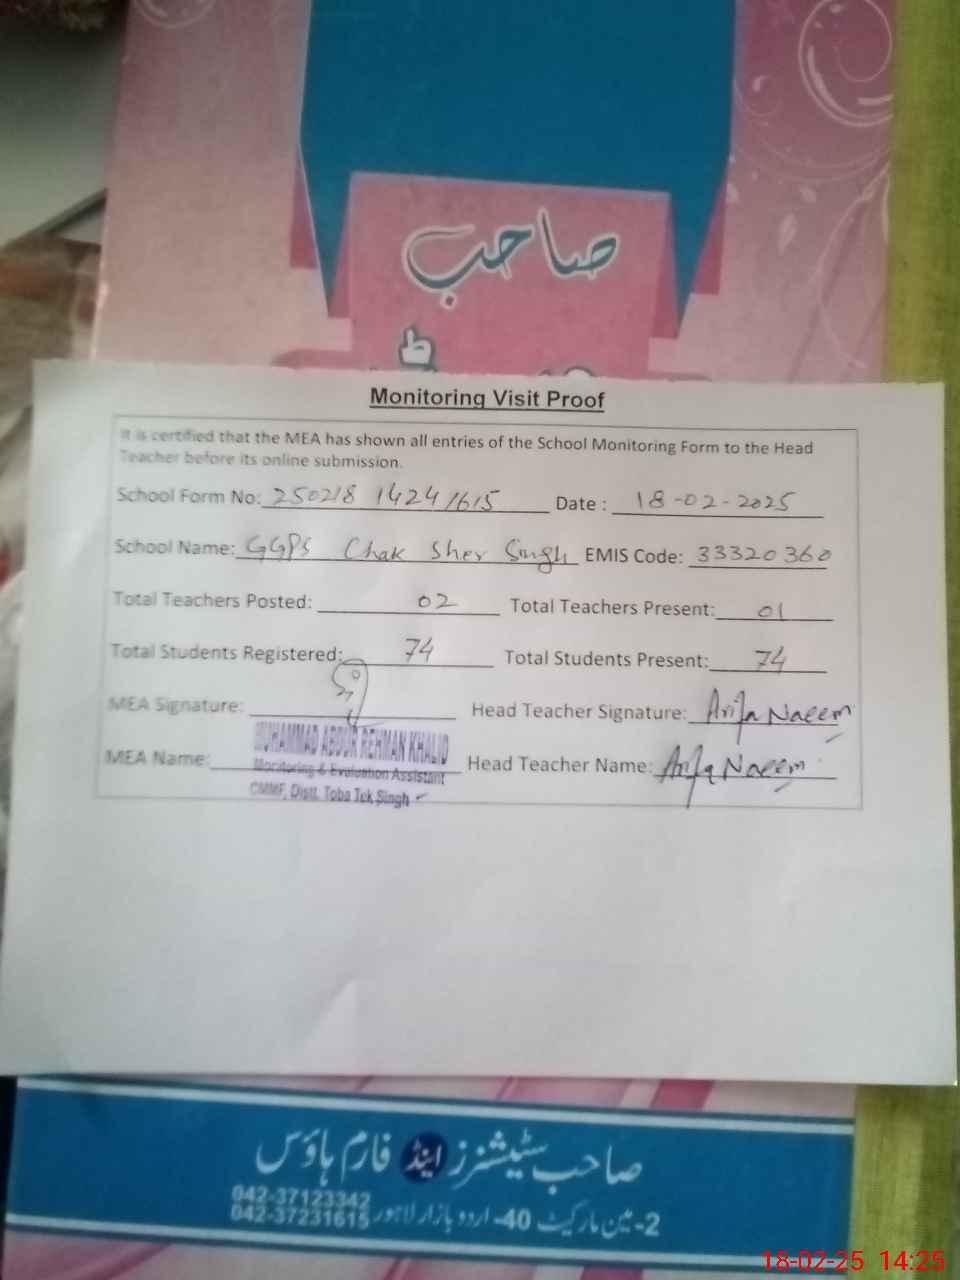 صاحب
Monitoring Visit Proof
It is certified that the MEA has shown all entries of the School Monitoring Form to the Head
Teacher before its online submission.
School Form No: 250218 1424 1615 Date : 18-02-2025
School Name: GGPS Chak Sher Singh EMIS Code: 33320360
Total Teachers Posted: 02 Total Teachers Present: 01
Total Students Registered: 74 Total Students Present: 74
MEA Signature: Head Teacher Signature: Arifa Naeem
MUHAMMAD ABDUR REHMAN KHALID
MEA Name: Head Teacher Name: Arifa Naeem
Monitoring & Evaluation Assistant
CMMF, Distt. Toba Tek Singh
صاحب سٹیشنرز اینڈ فارم ہاؤس
042-37123342
2-مین مارکیٹ 40- اردو بازار لاہور 042-37231615
18-02-25 14:25